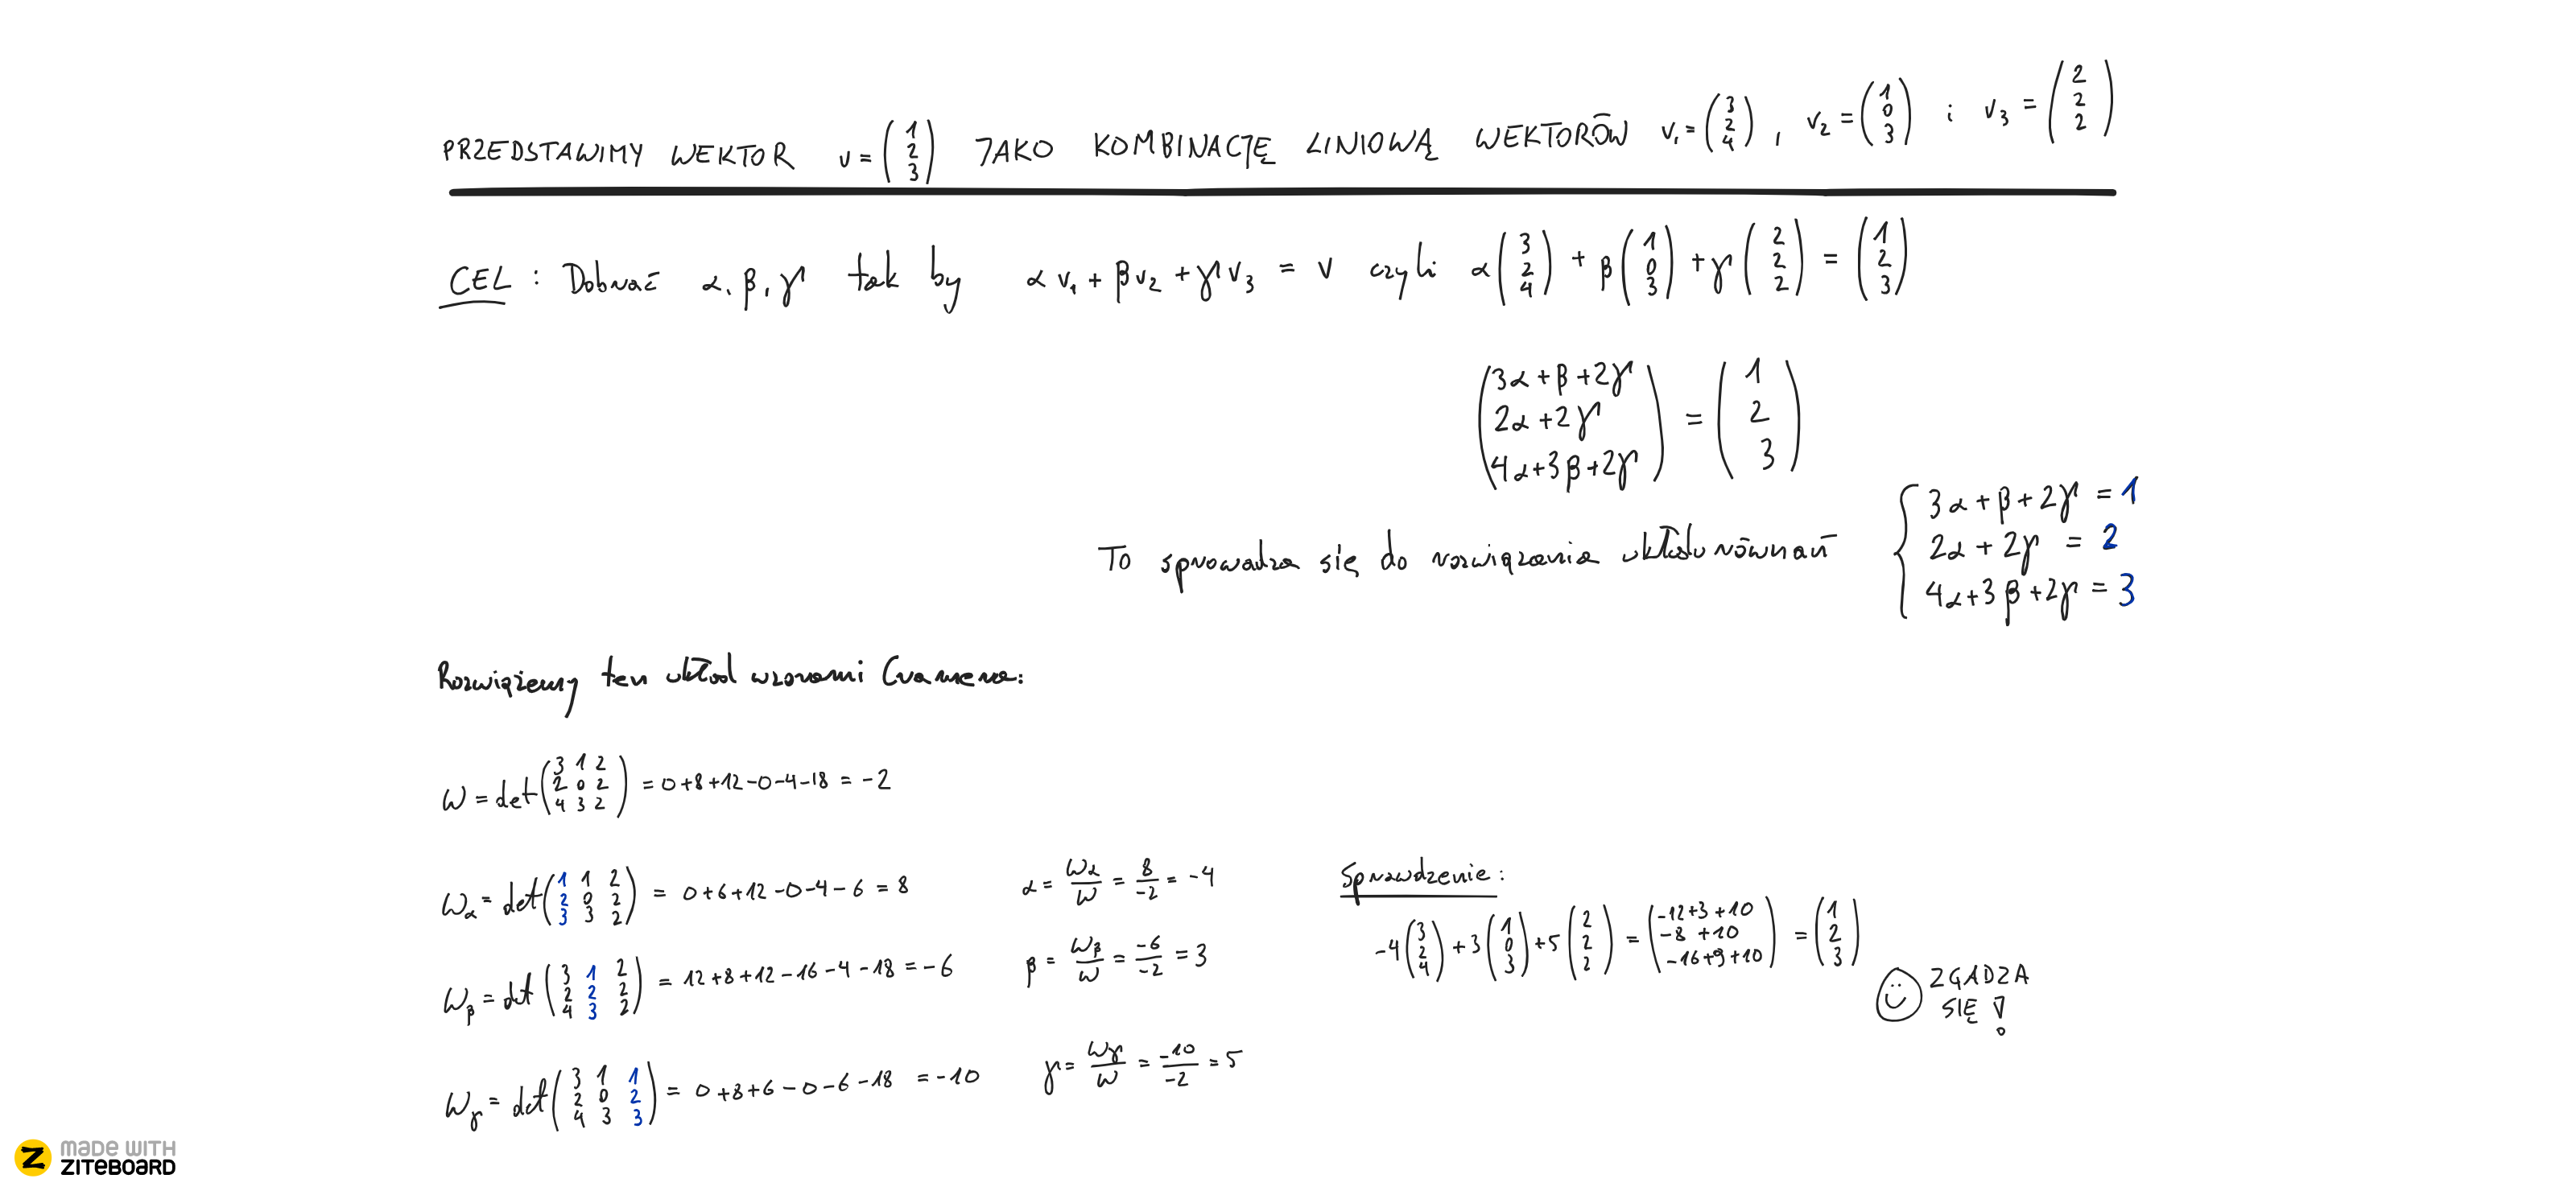 PRZEDSTAWIMY WEKTOR v = (1 2 3) JAKO KOMBINACJĘ LINIOWĄ WEKTORÓW v₁ = (3 2 4), v₂ = (1 0 3) i v₃ = (2 2 2)
CEL: Dobrać α, β, γ tak by αv₁ + βv₂ + γv₃ = v czyli α(3 2 4) + β(1 0 3) + γ(2 2 2) = (1 2 3)
(3α + β + 2γ) = (1)
(2α + 2γ) = (2)
(4α + 3β + 2γ) = (3)
To sprowadza się do rozwiązania układu równań
3α + β + 2γ = 1
2α + 2γ = 2
4α + 3β + 2γ = 3
Rozwiążemy ten układ wzorami Cramera:
W = det(3 1 2 / 2 0 2 / 4 3 2) = 0+8+12-0-4-18 = -2
Wα = det(1 1 2 / 2 0 2 / 3 3 2) = 0+6+12-0-4-6 = 8
α = Wα/W = 8/-2 = -4
Wβ = det(3 1 2 / 2 2 2 / 4 3 2) = 12+8+12-16-4-18 = -6
β = Wβ/W = -6/-2 = 3
Wγ = det(3 1 1 / 2 0 2 / 4 3 3) = 0+8+6-0-6-18 = -10
γ = Wγ/W = -10/-2 = 5
Sprawdzenie:
-4(3 2 4) + 3(1 0 3) + 5(2 2 2) = (-12+3+10 / -8+10 / -16+9+10) = (1 2 3)
ZGADZA
SIĘ!
MADE WITH
ZITEBOARD